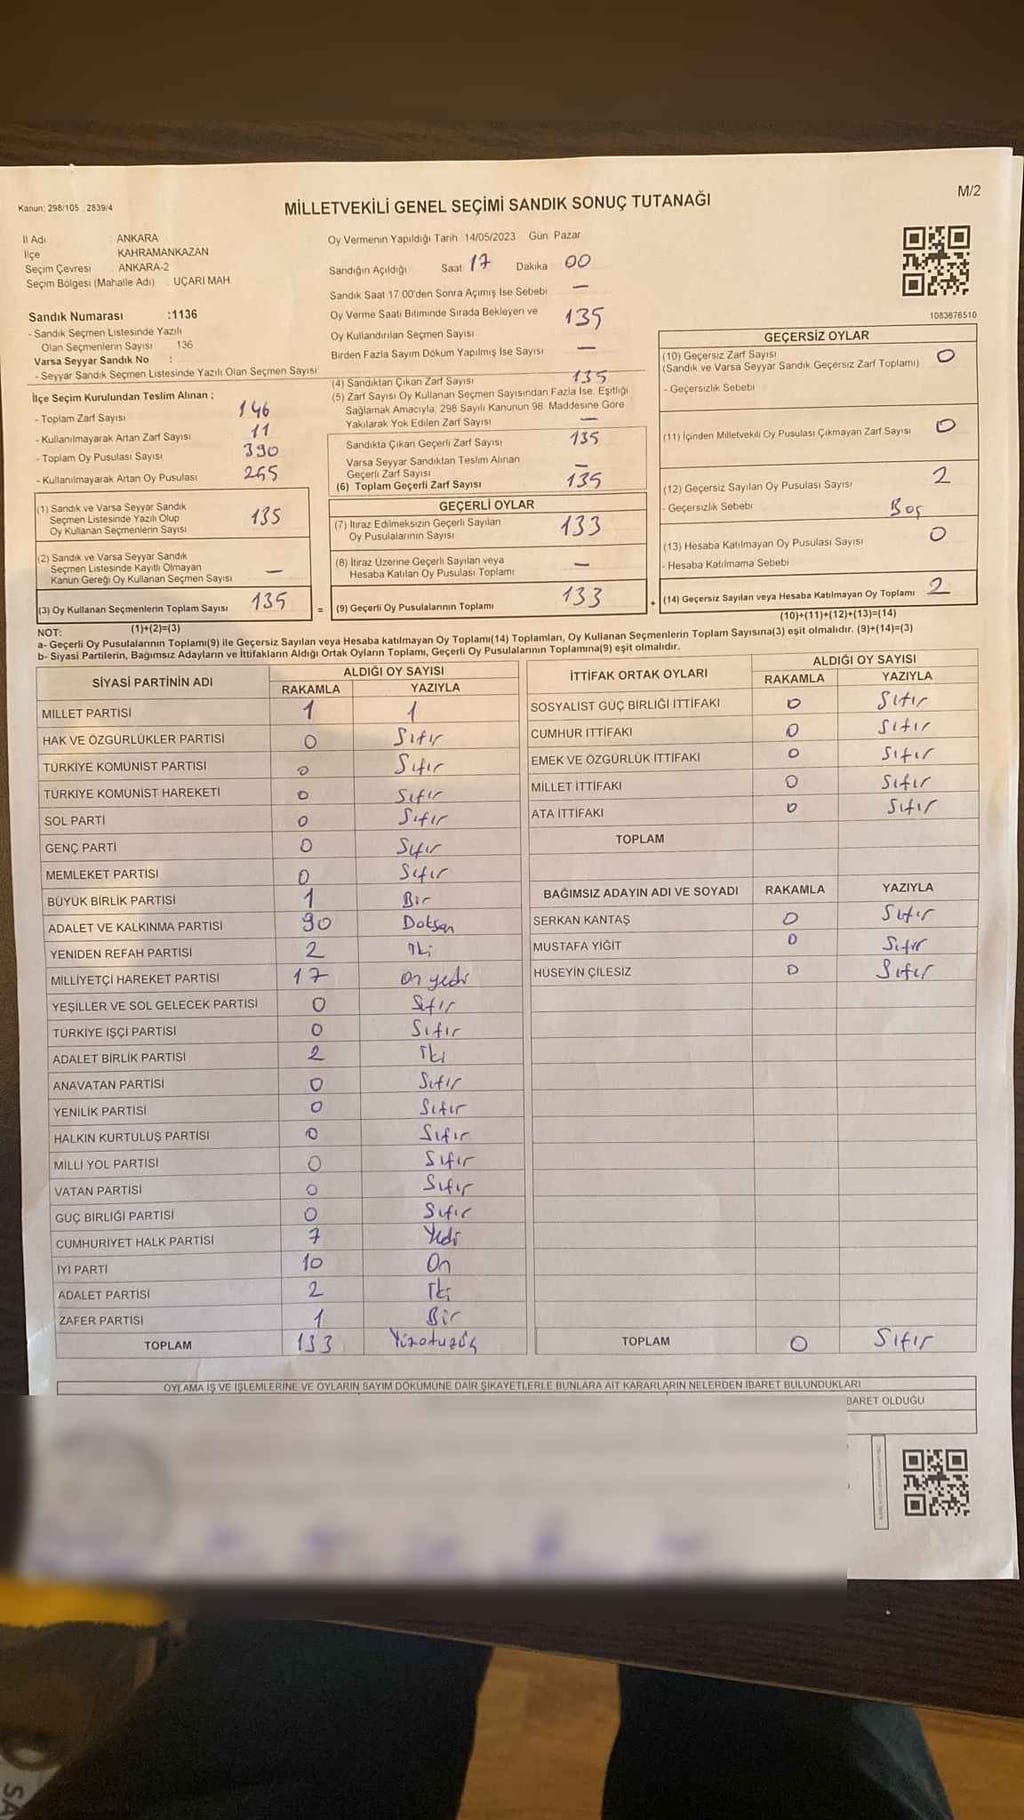 Kanun: 298/105 2839/4
MİLLETVEKİLİ GENEL SEÇİMİ SANDIK SONUÇ TUTANAĞI
M/2
İl Adı ANKARA
İlçe KAHRAMANKAZAN
Seçim Çevresi ANKARA-2
Seçim Bölgesi (Mahalle Adı) UÇARI MAH
Oy Vermenin Yapıldığı Tarih 14/05/2023 Gün Pazar
Sandığın Açıldığı Saat 17 Dakika 00
Sandık Saat 17 00'den Sonra Açımış İse Sebebi —
Oy Verme Saati Bitiminde Sırada Bekleyen ve
Oy Kullandırılan Seçmen Sayısı 135
Birden Fazla Sayım Döküm Yapılmış İse Sayısı —
1083676510
Sandık Numarası :1136
- Sandık Seçmen Listesinde Yazılı
Olan Seçmenlerin Sayısı 136
Varsa Seyyar Sandık No :
- Seyyar Sandık Seçmen Listesinde Yazılı Olan Seçmen Sayısı
İlçe Seçim Kurulundan Teslim Alınan ;
- Toplam Zarf Sayısı 146
- Kullanılmayarak Artan Zarf Sayısı 11
- Toplam Oy Pusulası Sayısı 390
- Kullanılmayarak Artan Oy Pusulası 255
(1) Sandık ve Varsa Seyyar Sandık
Seçmen Listesinde Yazılı Olup
Oy Kullanan Seçmenlerin Sayısı 135
(2) Sandık ve Varsa Seyyar Sandık
Seçmen Listesinde Kayıtlı Olmayan
Kanun Gereği Oy Kullanan Seçmen Sayısı —
(3) Oy Kullanan Seçmenlerin Toplam Sayısı 135
(1)+(2)=(3)
(4) Sandıktan Çıkan Zarf Sayısı 135
(5) Zarf Sayısı Oy Kullanan Seçmen Sayısından Fazla İse, Eşitliği
Sağlamak Amacıyla, 298 Sayılı Kanunun 98. Maddesine Göre
Yakılarak Yok Edilen Zarf Sayısı —
Sandıkta Çıkan Geçerli Zarf Sayısı 135
Varsa Seyyar Sandıktan Teslim Alınan
Geçerli Zarf Sayısı —
(6) Toplam Geçerli Zarf Sayısı 135
GEÇERLİ OYLAR
(7) İtiraz Edilmeksizin Geçerli Sayılan
Oy Pusulalarının Sayısı 133
(8) İtiraz Üzerine Geçerli Sayılan veya
Hesaba Katılan Oy Pusulası Toplamı —
= (9) Geçerli Oy Pusulalarının Toplamı 133
GEÇERSİZ OYLAR
(10) Geçersiz Zarf Sayısı 0
(Sandık ve Varsa Seyyar Sandık Geçersiz Zarf Toplamı)
- Geçersizlik Sebebi
(11) İçinden Milletvekili Oy Pusulası Çıkmayan Zarf Sayısı 0
(12) Geçersiz Sayılan Oy Pusulası Sayısı 2
- Geçersizlik Sebebi Boş
(13) Hesaba Katılmayan Oy Pusulası Sayısı 0
- Hesaba Katılmama Sebebi
+ (14) Geçersiz Sayılan veya Hesaba Katılmayan Oy Toplamı 2
(10)+(11)+(12)+(13)=(14)
NOT:
a- Geçerli Oy Pusulalarının Toplamı(9) ile Geçersiz Sayılan veya Hesaba katılmayan Oy Toplamı(14) Toplamları, Oy Kullanan Seçmenlerin Toplam Sayısına(3) eşit olmalıdır. (9)+(14)=(3)
b- Siyasi Partilerin, Bağımsız Adayların ve İttifakların Aldığı Ortak Oyların Toplamı, Geçerli Oy Pusulalarının Toplamına(9) eşit olmalıdır.
SİYASİ PARTİNİN ADI ALDIĞI OY SAYISI
RAKAMLA YAZIYLA
MİLLET PARTİSİ 1 1
HAK VE ÖZGÜRLÜKLER PARTİSİ 0 Sıfır
TÜRKİYE KOMÜNİST PARTİSİ 0 Sıfır
TÜRKİYE KOMÜNİST HAREKETİ 0 Sıfır
SOL PARTİ 0 Sıfır
GENÇ PARTİ 0 Sıfır
MEMLEKET PARTİSİ 0 Sıfır
BÜYÜK BİRLİK PARTİSİ 1 Bir
ADALET VE KALKINMA PARTİSİ 90 Doksan
YENİDEN REFAH PARTİSİ 2 İki
MİLLİYETÇİ HAREKET PARTİSİ 17 On yedi
YEŞİLLER VE SOL GELECEK PARTİSİ 0 Sıfır
TÜRKİYE İŞÇİ PARTİSİ 0 Sıfır
ADALET BİRLİK PARTİSİ 2 İki
ANAVATAN PARTİSİ 0 Sıfır
YENİLİK PARTİSİ 0 Sıfır
HALKIN KURTULUŞ PARTİSİ 0 Sıfır
MİLLİ YOL PARTİSİ 0 Sıfır
VATAN PARTİSİ 0 Sıfır
GÜÇ BİRLİĞİ PARTİSİ 0 Sıfır
CUMHURİYET HALK PARTİSİ 7 Yedi
İYİ PARTİ 10 On
ADALET PARTİSİ 2 İki
ZAFER PARTİSİ 1 Bir
TOPLAM 133 Yüzotuzüç
İTTİFAK ORTAK OYLARI ALDIĞI OY SAYISI
RAKAMLA YAZIYLA
SOSYALİST GÜÇ BİRLİĞİ İTTİFAKI 0 Sıfır
CUMHUR İTTİFAKI 0 Sıfır
EMEK VE ÖZGÜRLÜK İTTİFAKI 0 Sıfır
MİLLET İTTİFAKI 0 Sıfır
ATA İTTİFAKI 0 Sıfır
TOPLAM
BAĞIMSIZ ADAYIN ADI VE SOYADI RAKAMLA YAZIYLA
SERKAN KANTAŞ 0 Sıfır
MUSTAFA YİĞİT 0 Sıfır
HÜSEYİN ÇİLESİZ 0 Sıfır
TOPLAM 0 Sıfır
OYLAMA İŞ VE İŞLEMLERİNE VE OYLARIN SAYIM DÖKÜMÜNE DAİR ŞİKAYETLERLE BUNLARA AİT KARARLARIN NELERDEN İBARET BULUNDUKLARI
BARET OLDUĞU